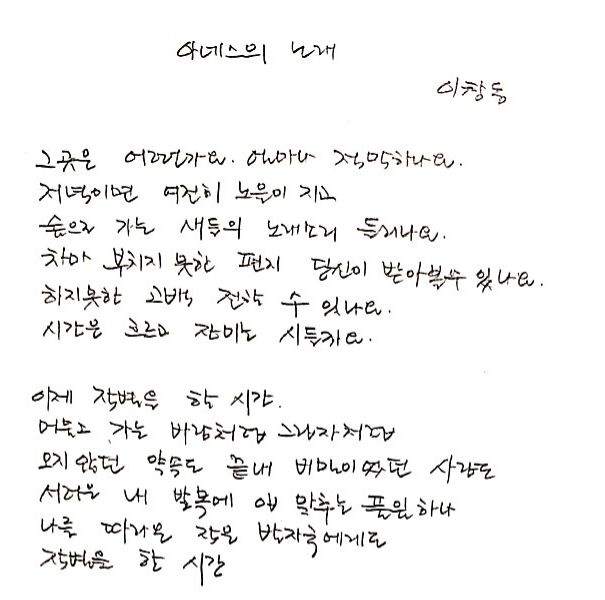 아네스의 노래
이창동
그곳은 어떤가요. 얼마나 적막하나요.
저녁이면 여전히 노을이 지고
숲으로 가는 새들의 노래소리 들리나요.
차마 부치지 못한 편지 당신이 받아볼수 있나요.
하지못한 고백 전할 수 있나요.
시간은 흐르고 장미는 시들까요.
이제 작별을 할 시간.
머물고 가는 바람처럼 그림자처럼
오지 않던 약속도 끝내 비밀이었던 사랑도
서러운 내 발목에 입 맞추는 풀잎 하나
나를 따라온 작은 발자국에게도
작별을 할 시간